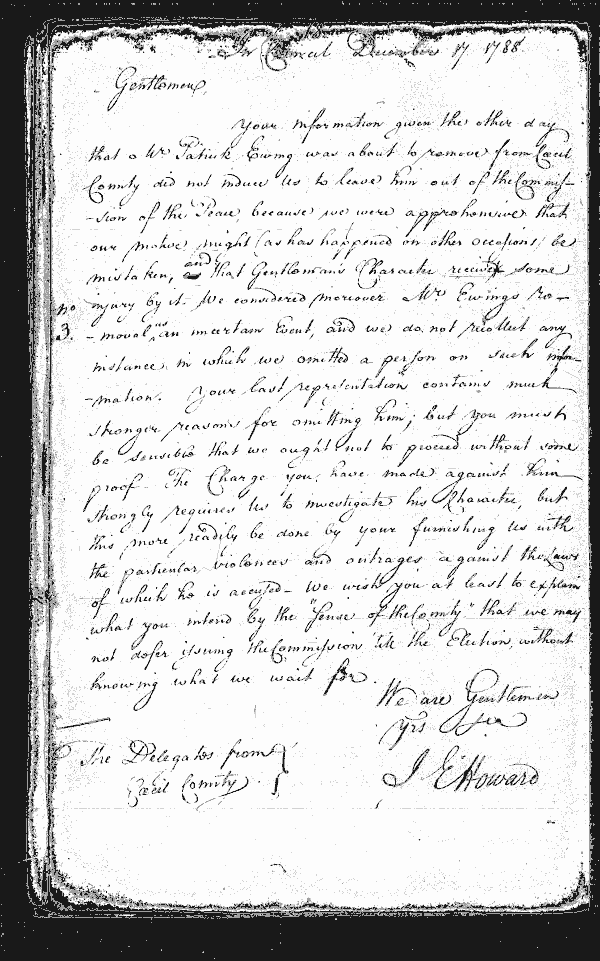 In Council December 17 1788
Gentlemen,
Your information given the other day
that a Mr Patrick Ewing was about to remove from Cæcil
County did not induce Us to leave him out of the Commis-
-sion of the Peace because we were apprehensive that
our motive might (as has happened on other occasions) be
mistaken, and that Gentleman's Character receive some
injury by it. We considered moreover Mr Ewings re-
no 3. -moval as an uncertain Event, and we do not recollect any
instance in which we omitted a person on such infor-
-mation. Your last representation contains much
stronger reasons for omitting him; but you must
be sensible that we ought not to proceed without some
proof. The Charge you have made against him
strongly requires Us to investigate his Character, but
this more readily be done by your furnishing Us with
the particular violences and outrages against the Laws
of which he is accused - We wish you at least to explain
what you intend by the "Sense of the County" that we may
not defer issuing the Commission till the Election, without
knowing what we wait for.
We are Gentlemen
Yrs &ca
The Delegates from
Cæcil County
J E Howard